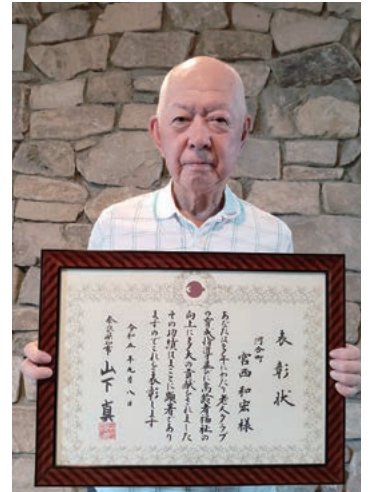 表彰状
河合町
宮西和宏様
あなたは多年にわたり老人クラブ
の育成指導並びに高齢者福祉の
向上に多大の貢献をされました
その功績はまことに顕著であり
ますのでこれを表彰します
令和五年九月八日
奈良県知事 山下真